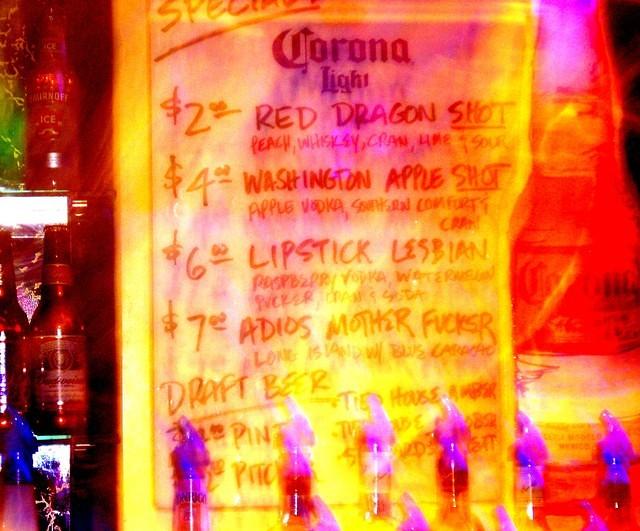 SPECIALS
Corona
Light
$2.00 RED DRAGON SHOT
PEACH, WHISKEY, CRAN, LIME & SOUR
$4.00 WASHINGTON APPLE SHOT
APPLE VODKA, SOUTHERN COMFORT &
CRAN
$6.00 LIPSTICK LESBIAN
RASPBERRY VODKA, WATERMELON
PUCKER, CRAN & SODA
$7.00 ADIOS MOTHER FUCKER
LONG ISLAND W/ BLUE CARACAO
DRAFT BEER
TIED HOUSE AMBER
PINT
PITC
SMIRNOFF
ICE